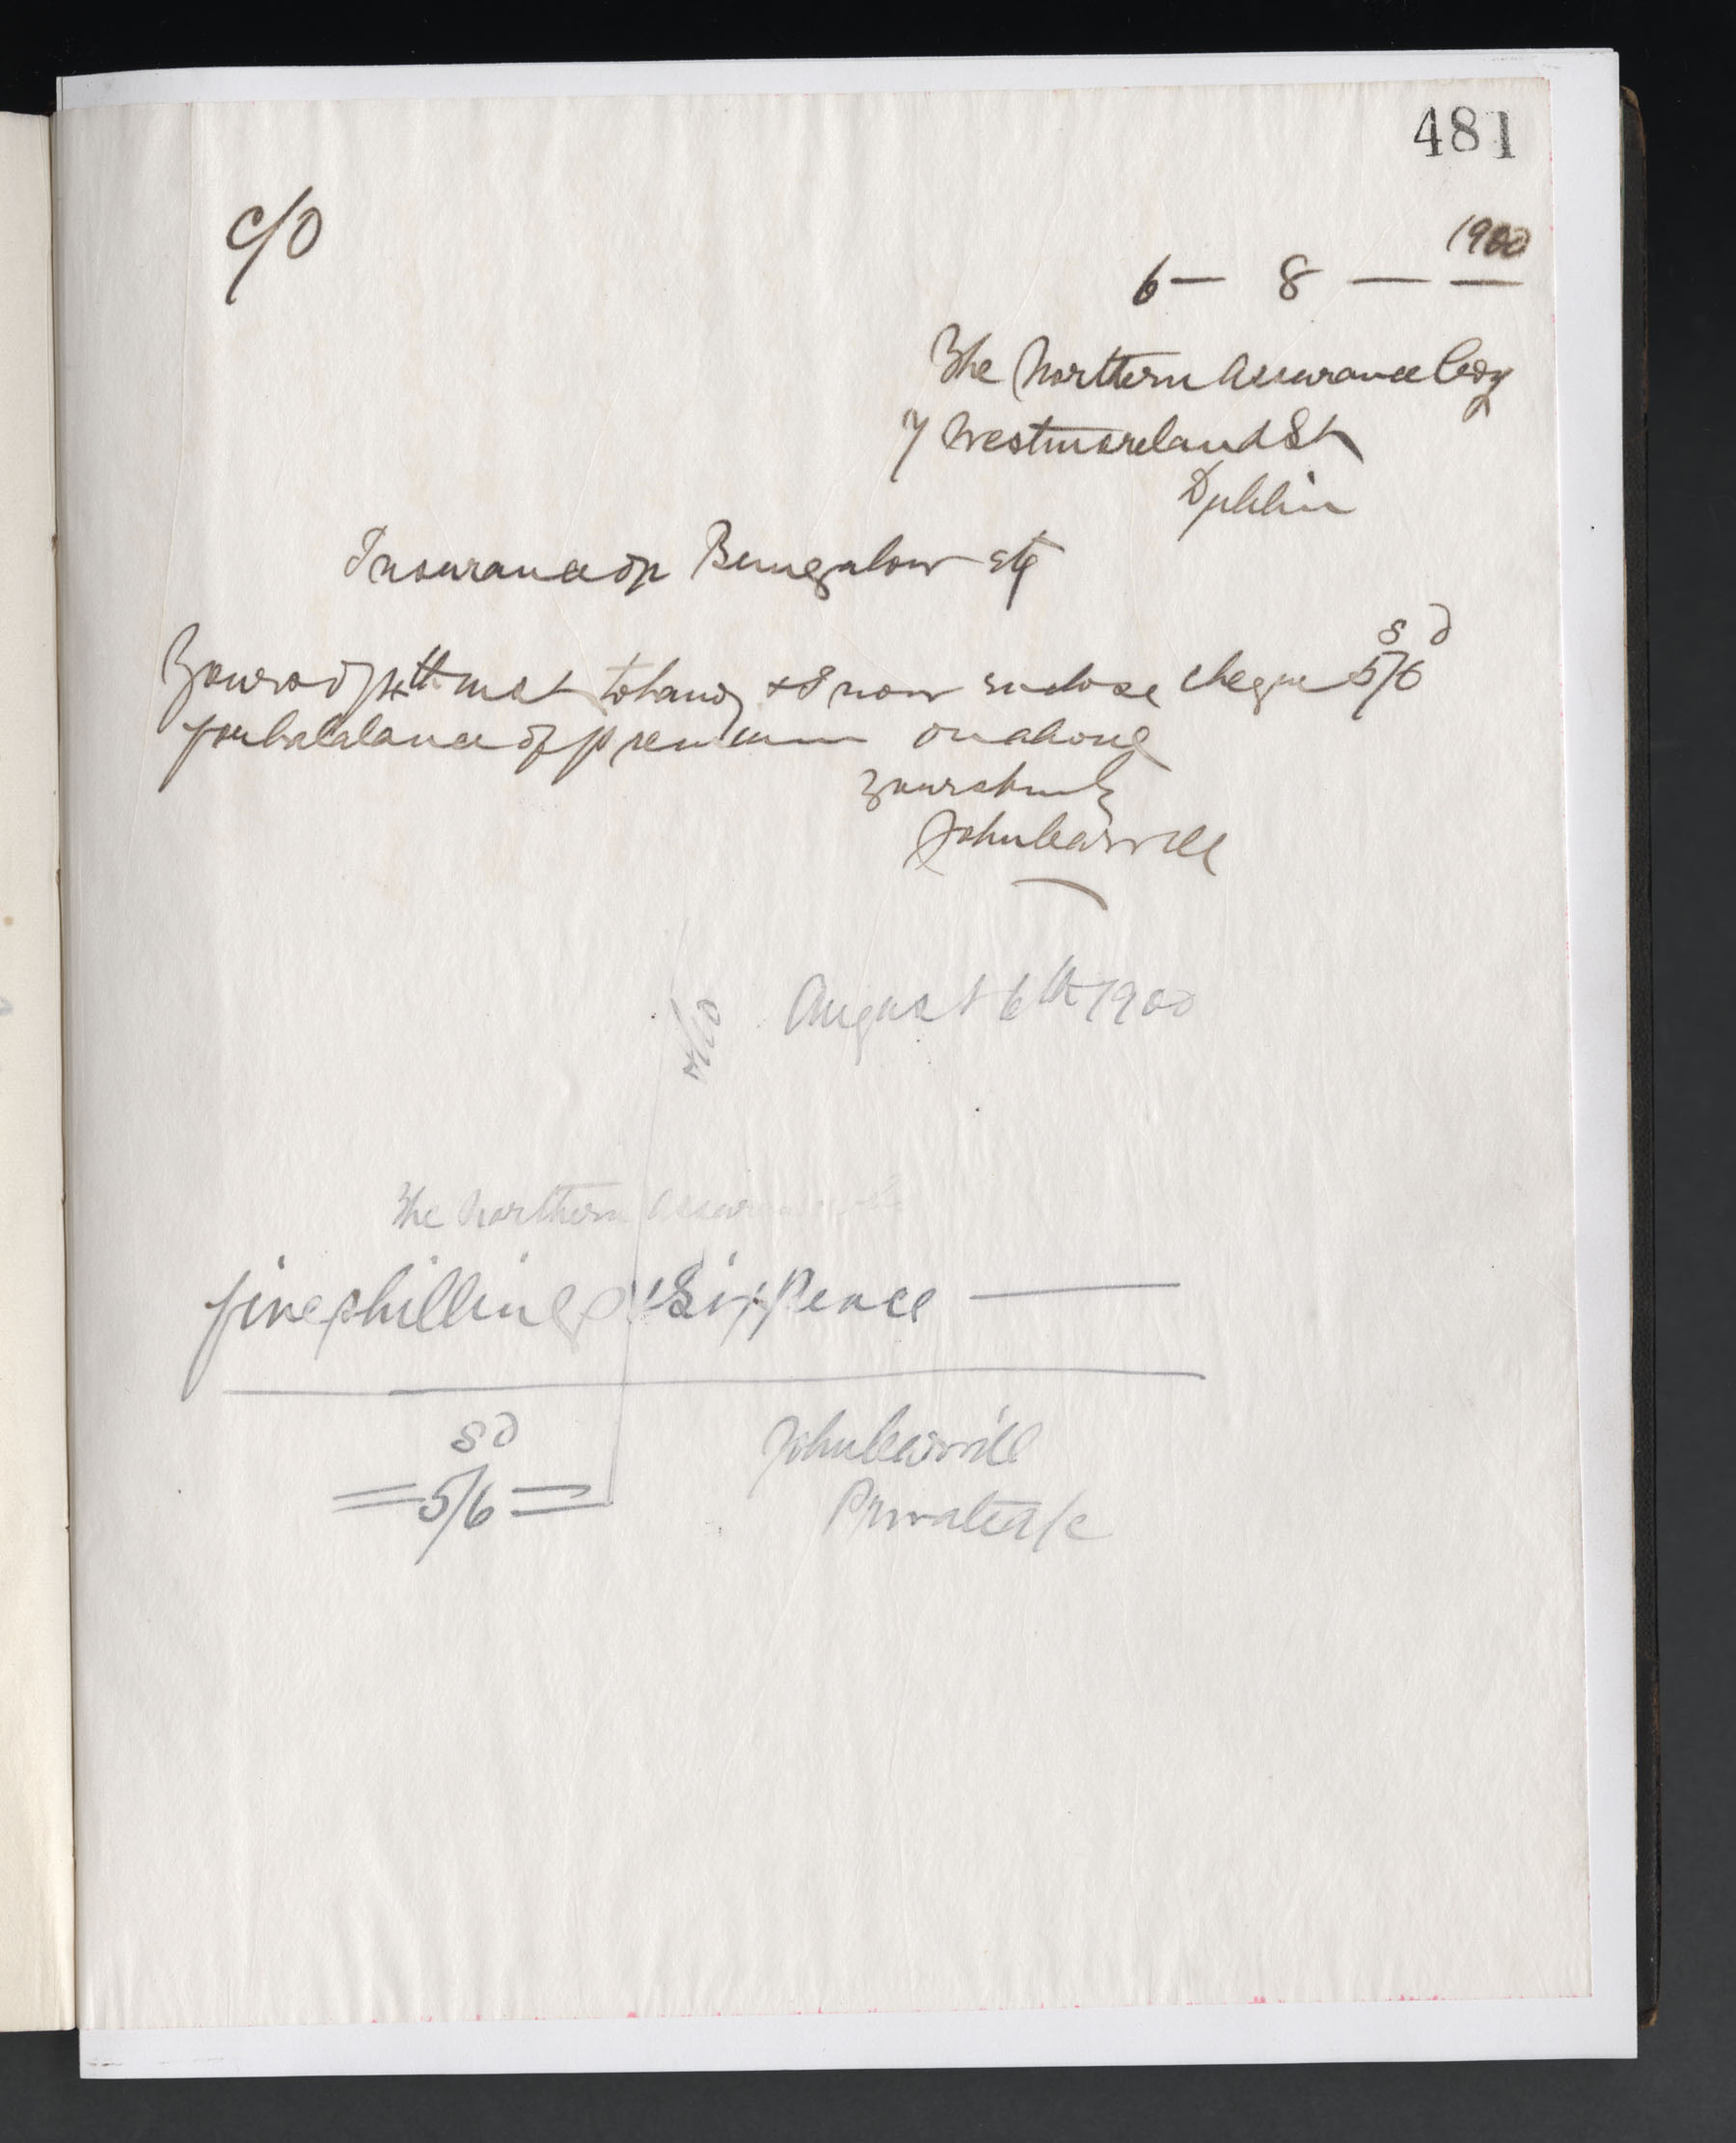 481
C/O
1900
6 — 8 —
The Northern Assurance Coy
7 Westmoreland St
Dublin
Insurance on Bungalow etc
s d
Yours of 4th inst to hand & I now enclose cheque 5/6
for balalance of premium on above
Yours truly
John Carvill
August 6th 1900
The Northern Assurance
five shillings & Six Pence —
s d
= 5/6 =
John Carvill
Private a/c